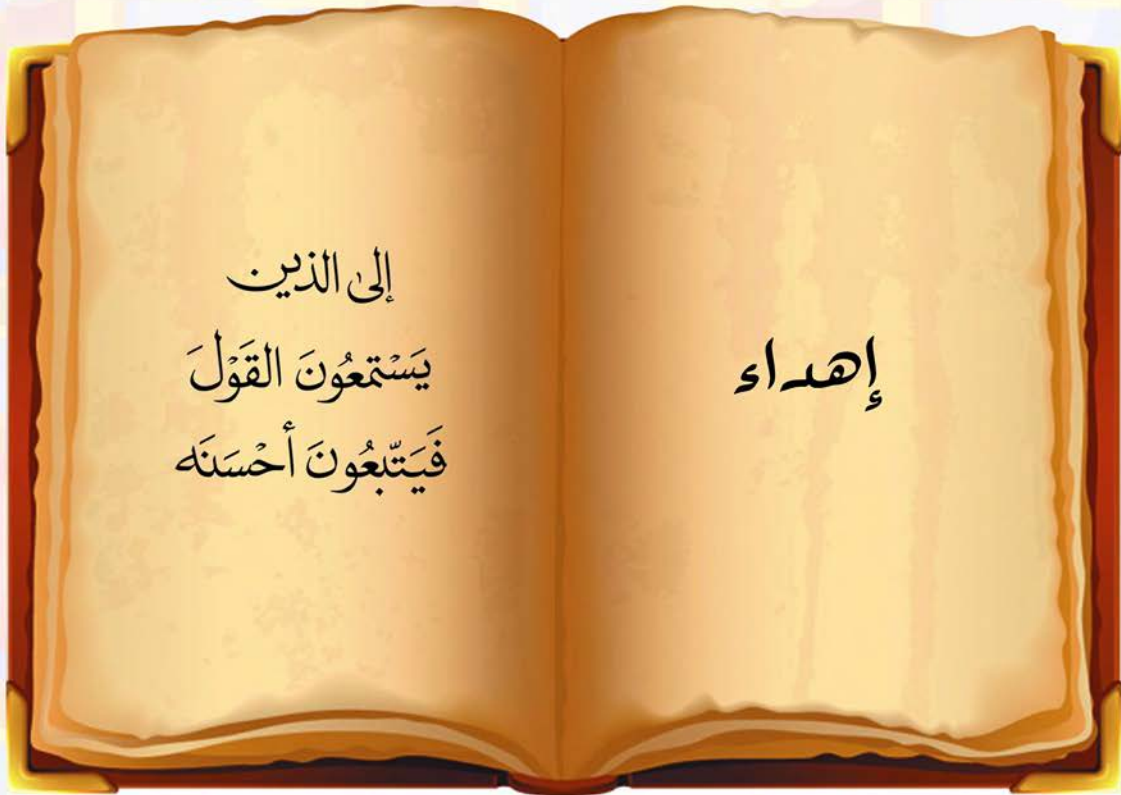 إهداء
إلى الذين
يَسْتَمعُونَ القَوْلَ
فَيَتّبعُونَ أحْسَنَه